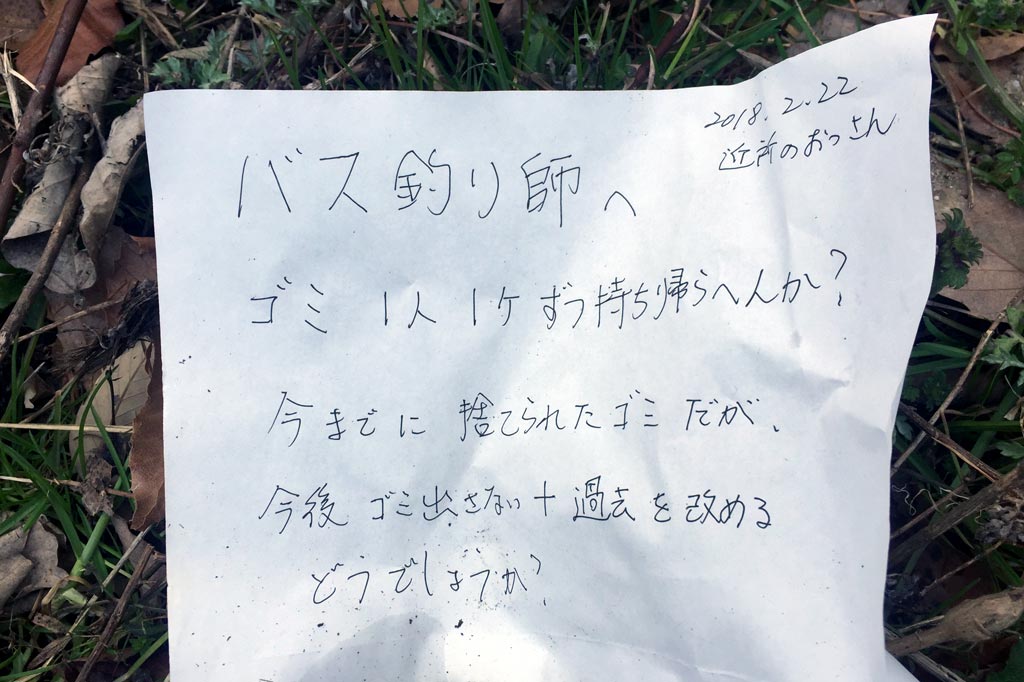 2018.2.22
近所のおっさん
バス釣り師へ
ゴミ 1人 1ケ ずつ持ち帰らへんか?
今までに 捨てられたゴミ だが、
今後 ゴミ出さない + 過去を改める
どうでしょうか?